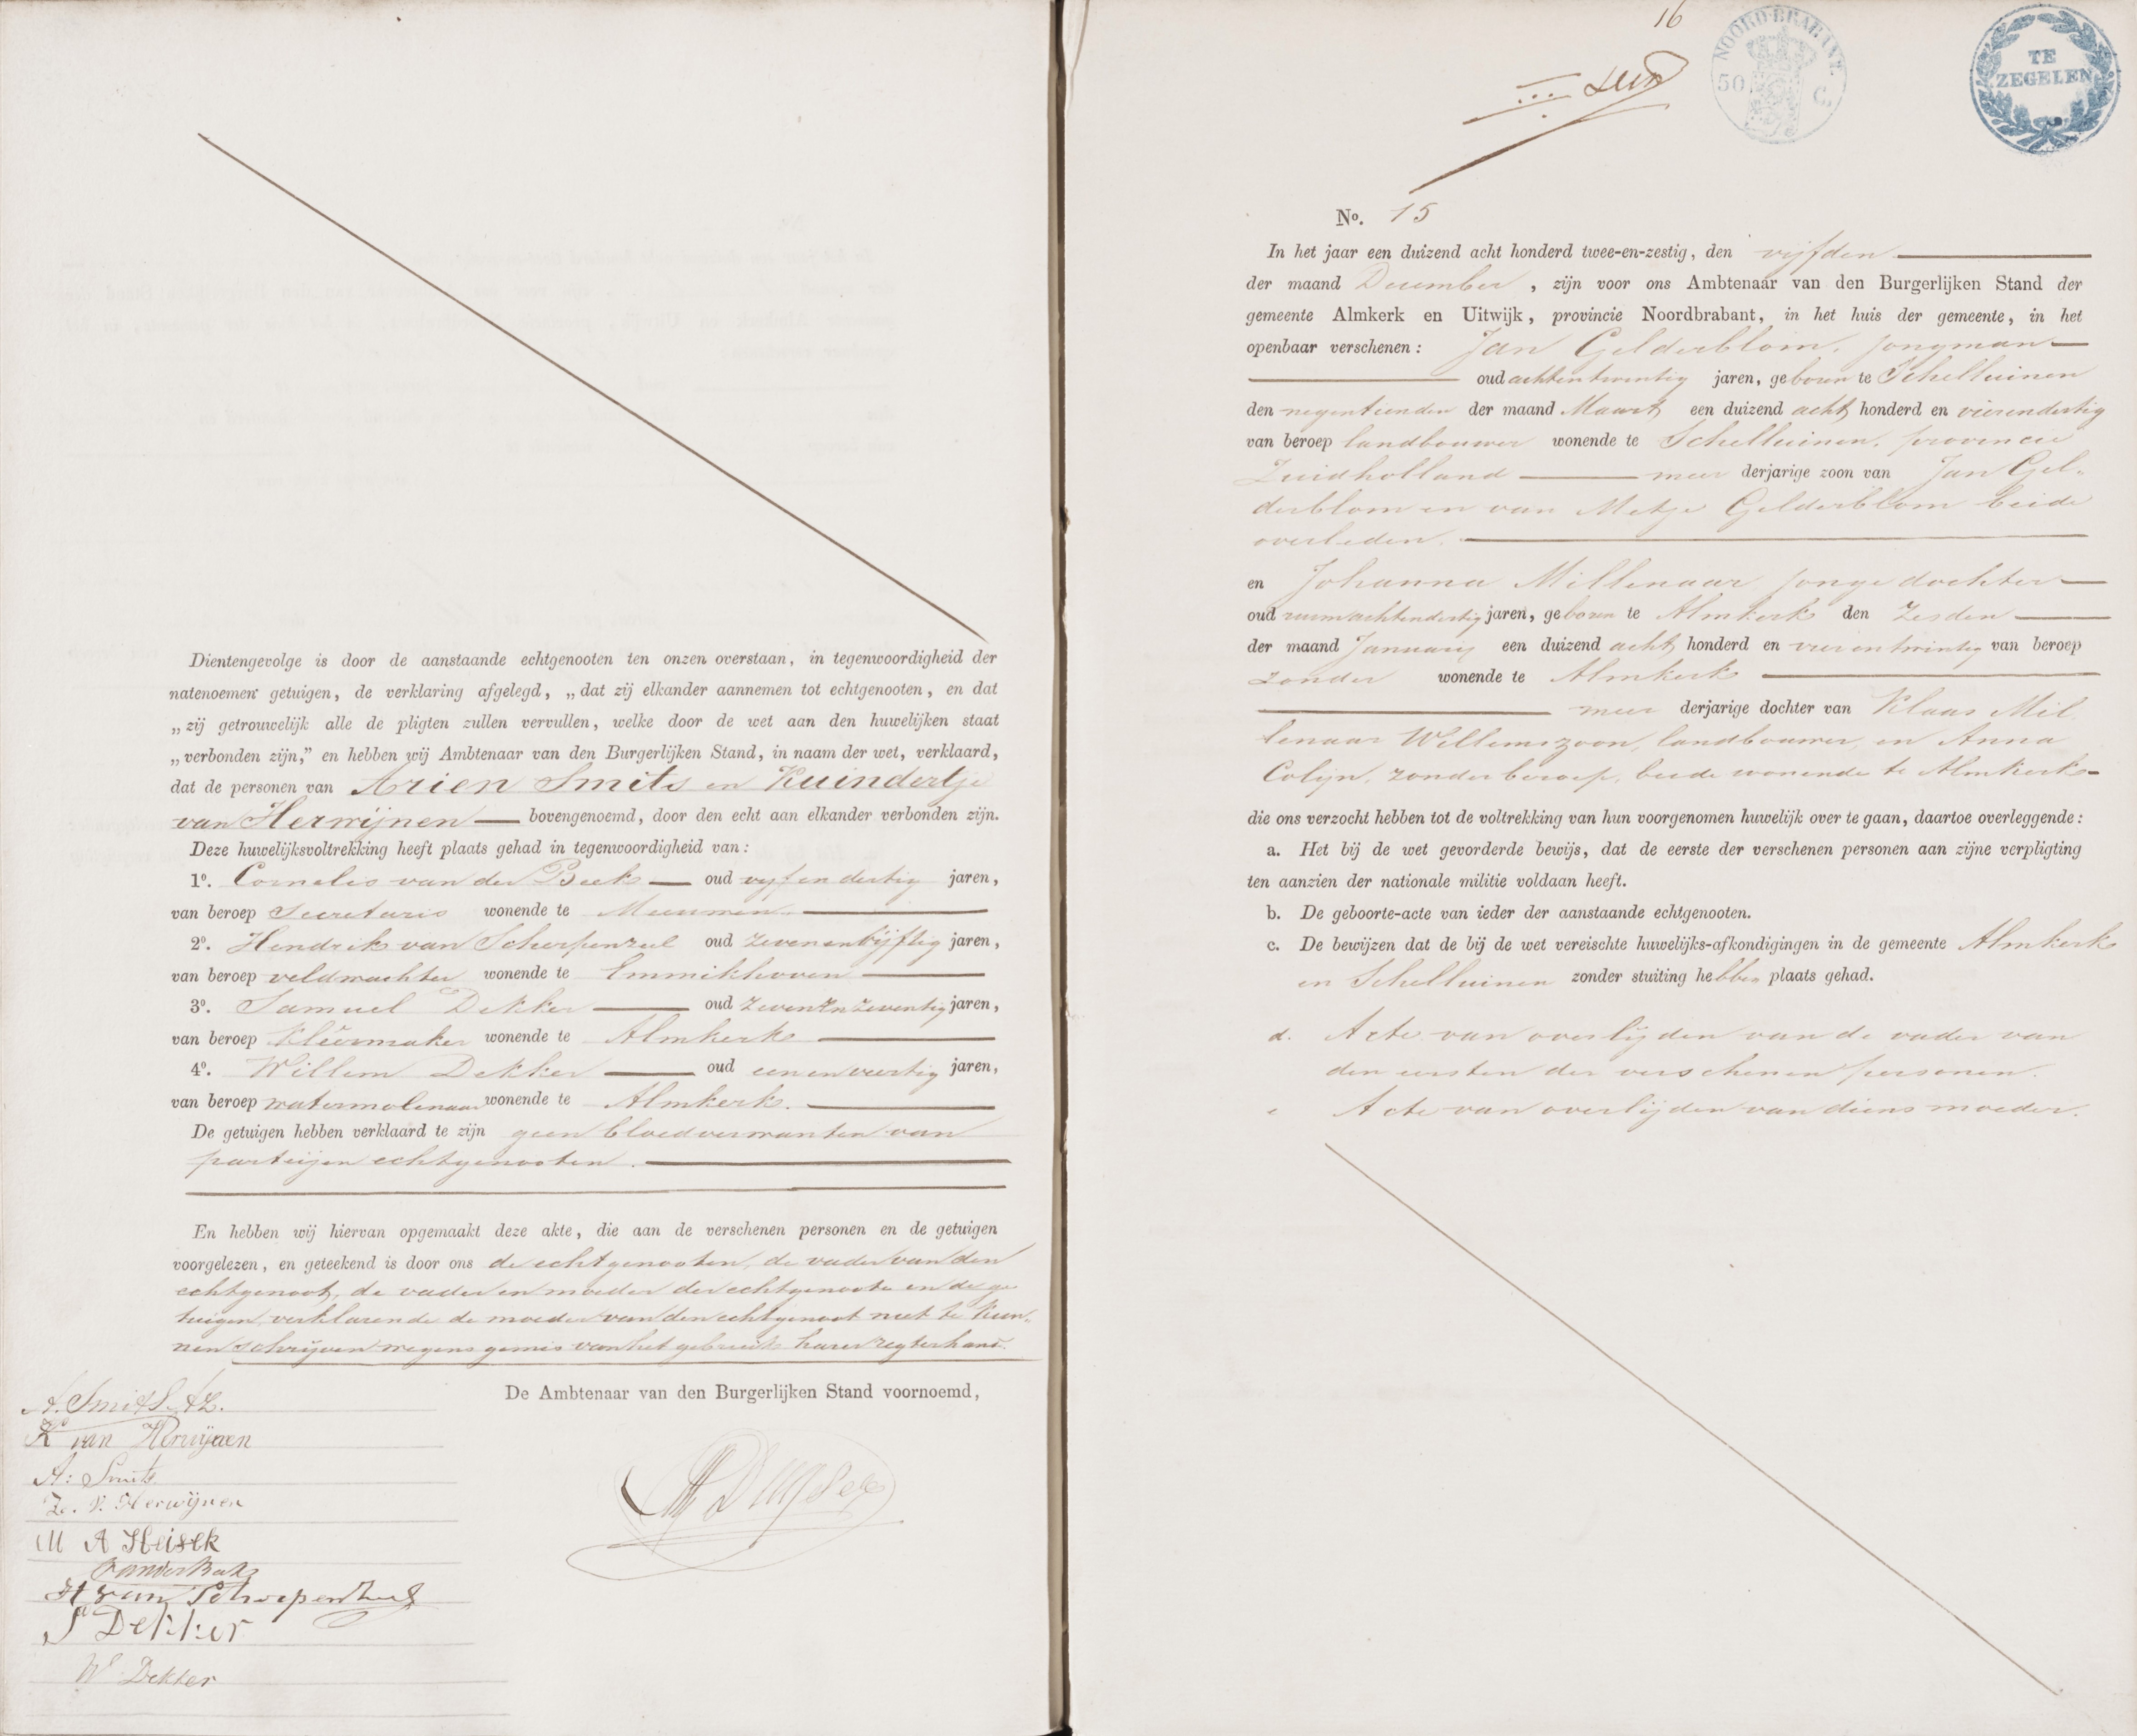 Dientengevolge is door de aanstaande echtgenooten ten onzen overstaan, in tegenwoordigheid der
natenoemen getuigen, de verklaring afgelegd, „dat zij elkander aannemen tot echtgenooten, en dat
„zij getrouwelijk alle de pligten zullen vervullen, welke door de wet aan den huwelijken staat
„verbonden zijn,” en hebben wij Ambtenaar van den Burgerlijken Stand, in naam der wet, verklaard,
dat de personen van Arien Smits en Kuindertje
van Herwijnen bovengenoemd, door den echt aan elkander verbonden zijn.
Deze huwelijksvoltrekking heeft plaats gehad in tegenwoordigheid van:
1o. Cornelis van der Beek oud vyf en dertig jaren,
van beroep Secretaris wonende te Meeuwen
2o. Hendrik van Scherpenzeel oud zevenenvijftig jaren,
van beroep veldwachter wonende te Emmikhoven
3o. Samuel Dekker oud zevenenzeventig jaren,
van beroep Kleêrmaker wonende te Almkerk
4o. Willem Dekker oud eenenveertig jaren,
van beroep watermolenaar wonende te Almkerk.
De getuigen hebben verklaard te zijn geen bloedverwanten van
parteijen echtgenooten.
En hebben wij hiervan opgemaakt deze akte, die aan de verschenen personen en de getuigen
voorgelezen, en geteekend is door ons de echtgenooten, de vader van den
echtgenoot, de vader en moeder der echtgenoote en de ge
tuigen, verklarende de moeder van den echtgenoot niet te kun-
nen schrijven wegens gemis van het gebruik harer regterhand.
De Ambtenaar van den Burgerlijken Stand voornoemd,
A. Smits Az.
K van Herwijnen
A: Smits
Ze. V. Herwijnen
M A Heisek
vander Beek
H van Scherpenzeel
S Dekker
W Dekker
16
NOORD-BRABANT
50 C.
TE
ZEGELEN
No. 15
In het jaar een duizend acht honderd twee-en-zestig, den vijfden
der maand December, zijn voor ons Ambtenaar van den Burgerlijken Stand der
gemeente Almkerk en Uitwijk, provincie Noordbrabant, in het huis der gemeente, in het
openbaar verschenen: Jan Gelderblom, jongman
oud achtentwintig jaren, geboren te Schelluinen
den negentienden der maand Maart een duizend acht honderd en vierendertig
van beroep landbouwer wonende te Schelluinen, provincie
Zuidholland meer derjarige zoon van Jan Gel-
derblom en van Metje Gelderblom beide
overleden.
en Johanna Millenaar jonge dochter
oud ruim achtendertig jaren, geboren te Almkerk den Zesden
der maand January een duizend acht honderd en vierentwintig van beroep
zonder wonende te Almkerk
meer derjarige dochter van Klaas Mil
lenaar Willemszoon, landbouwer, en Anna
Colijn, zonder beroep, beide wonende te Almkerk
die ons verzocht hebben tot de voltrekking van hun voorgenomen huwelijk over te gaan, daartoe overleggende:
a. Het bij de wet gevorderde bewijs, dat de eerste der verschenen personen aan zijne verpligting
ten aanzien der nationale militie voldaan heeft.
b. De geboorte-acte van ieder der aanstaande echtgenooten.
c. De bewijzen dat de bij de wet vereischte huwelijks-afkondigingen in de gemeente Almkerk
en Schelluinen zonder stuiting hebben plaats gehad.
d. Acte van overlijden van de vader van
den eersten der verschenen personen.
e Acte van overlijden van diens moeder.